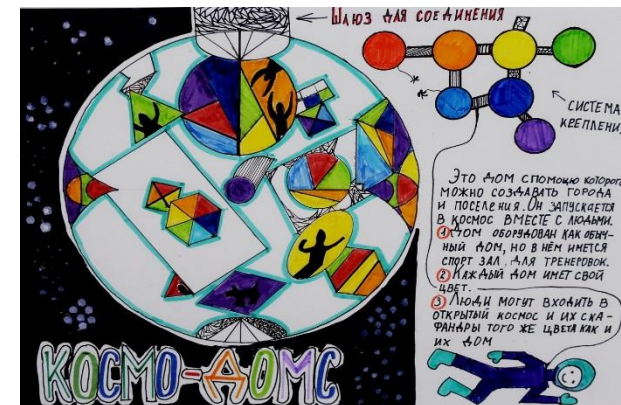 Шлюз для соединения
система
креплени
Это дом спомощю которого
можно создавать города
и поселения. Он запускается
в космос вместе с людьми.
1 Дом оборудован как обыч-
ный дом, но в нём имется
спорт зал, для тренеровок.
2 Каждый дом имет свой
цвет.
3 Люди могут входить в
открытый космос и их ска-
фандры того же цвета как и
их дом
КОСМО-ДОМС